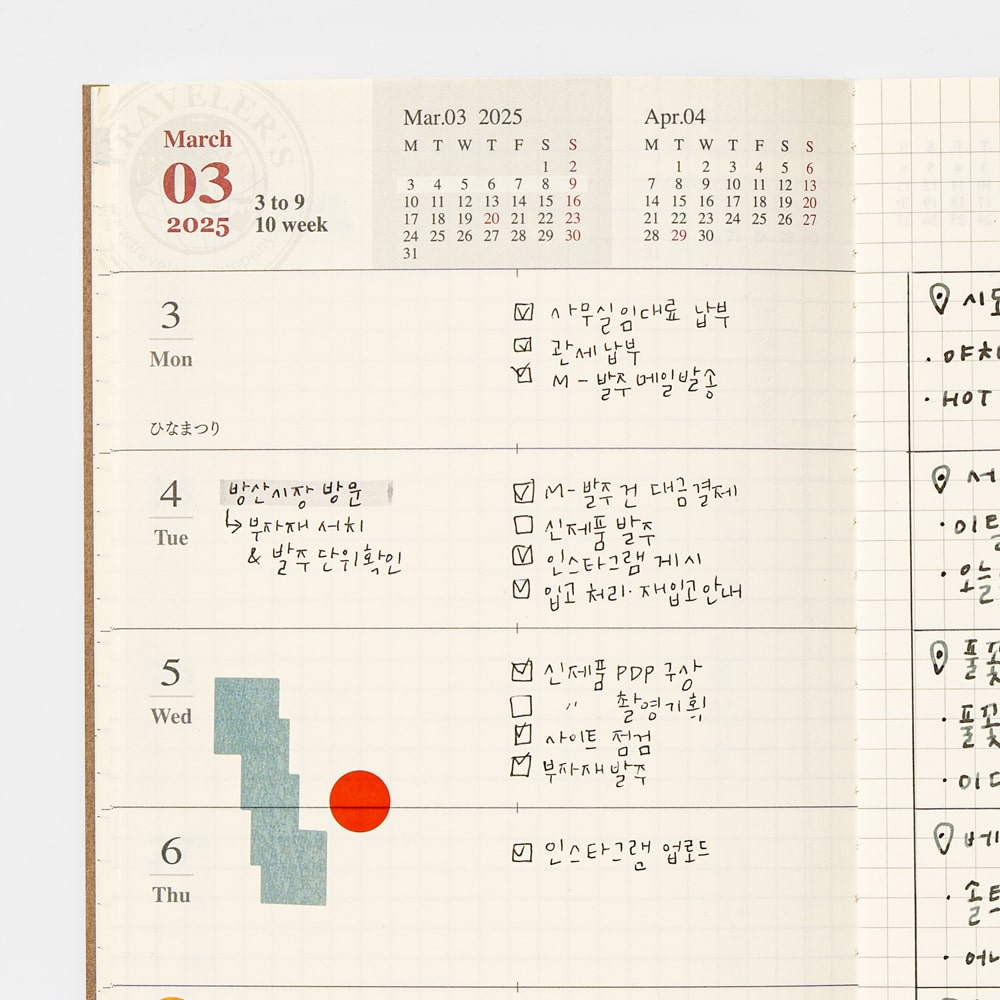 TRAVELER'S
March
03
2025
3 to 9
10 week
Mar.03 2025
M T W T F S S
1 2
3 4 5 6 7 8 9
10 11 12 13 14 15 16
17 18 19 20 21 22 23
24 25 26 27 28 29 30
31
Apr.04
M T W T F S S
1 2 3 4 5 6
7 8 9 10 11 12 13
14 15 16 17 18 19 20
21 22 23 24 25 26 27
28 29 30
3
Mon
ひなまつり
사무실임대료 납부
관세납부
M - 발주메일발송
4
Tue
방산시장 방문
↳ 부자재 서치
& 발주단위확인
M- 발주건 대금결제
신제품 발주
인스타그램 게시
입고 처리· 재입고안내
5
Wed
신제품 PDP 구상
〃 촬영기획
사이트 점검
부자재발주
6
Thu
인스타그램 업로드
HOT